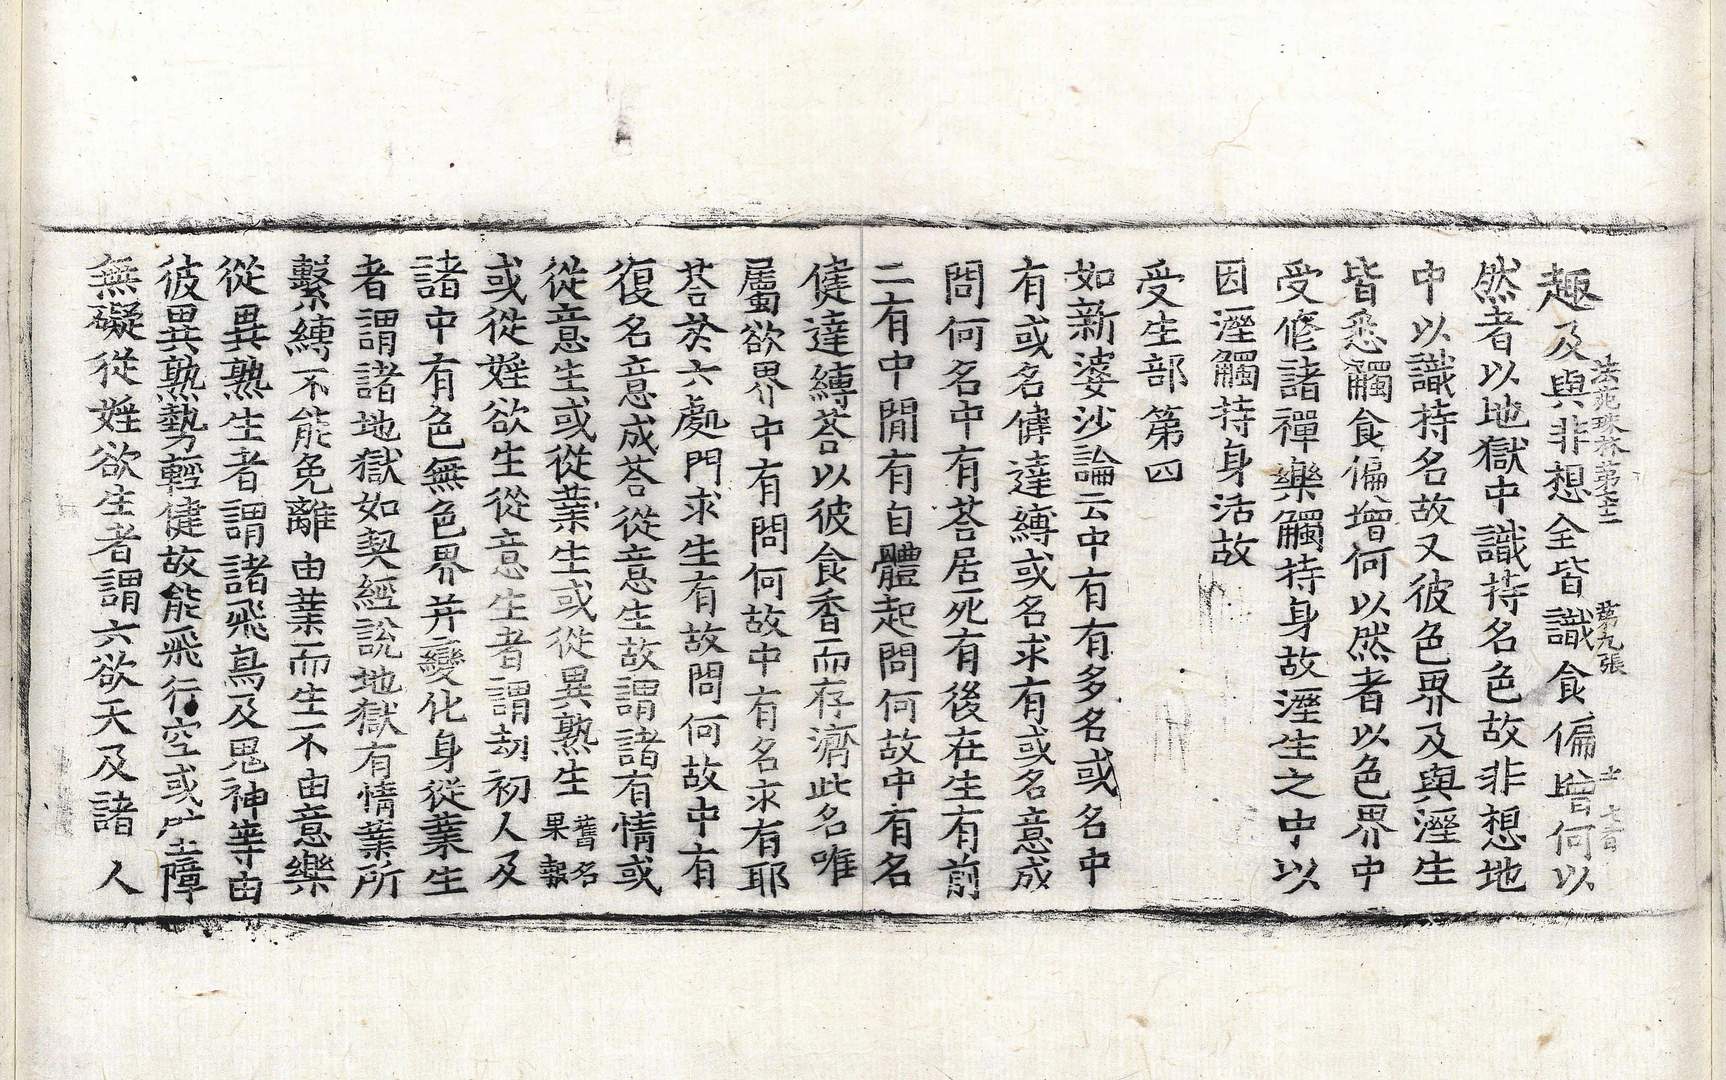 法苑珠林第七十二 第九張
趣及與非想全皆識食偏增何以
然者以地獄中識持名色故非想地
中以識持名故又彼色界及與溼生
皆悉觸食偏增何以然者以色界中
受修諸禪樂觸持身故溼生之中以
因溼觸持身活故
受生部第四
如新婆沙論云中有有多名或名中
有或名健達縛或名求有或名意成
問何名中有荅居死有後在生有前
二有中閒有自體起問何故中有名
健達縛荅以彼食香而存濟此名唯
屬欲界中有問何故中有名求有耶
荅於六處門求生有故問何故中有
復名意成荅從意生故謂諸有情或
從意生或從業生或從異熟生 舊名果報
或從婬欲生從意生者謂劫初人及
諸中有色無色界并變化身從業生
者謂諸地獄如契經說地獄有情業所
繫縛不能免離由業而生不由意樂
從異熟生者謂諸飛鳥及鬼神等由
彼異熟勢輕健故能飛行空或壁障
無礙從婬欲生者謂六欲天及諸人